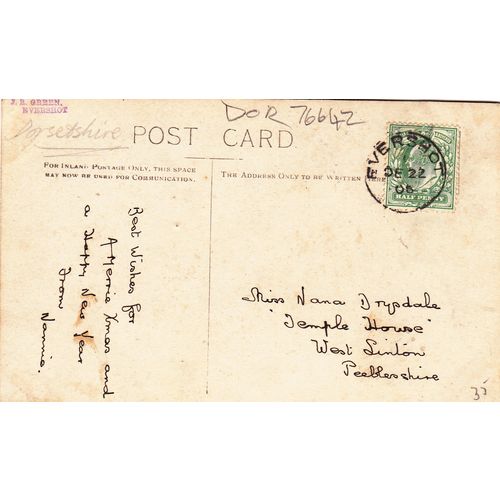 J. R. GREEN,
EVERSHOT
Dorsetshire
DOR 76642
POST CARD.
FOR INLAND POSTAGE ONLY, THIS SPACE
MAY NOW BE USED FOR COMMUNICATION.
THE ADDRESS ONLY TO BE WRITTEN HERE
EVERSHOT
DE 22
06
HALF PENNY
Best Wishes for
A Merrie Xmas and
a Happy New Year
From
Nannie.
Miss Nana Drysdale
"Temple House"
West Linton
Peeblesshire
35